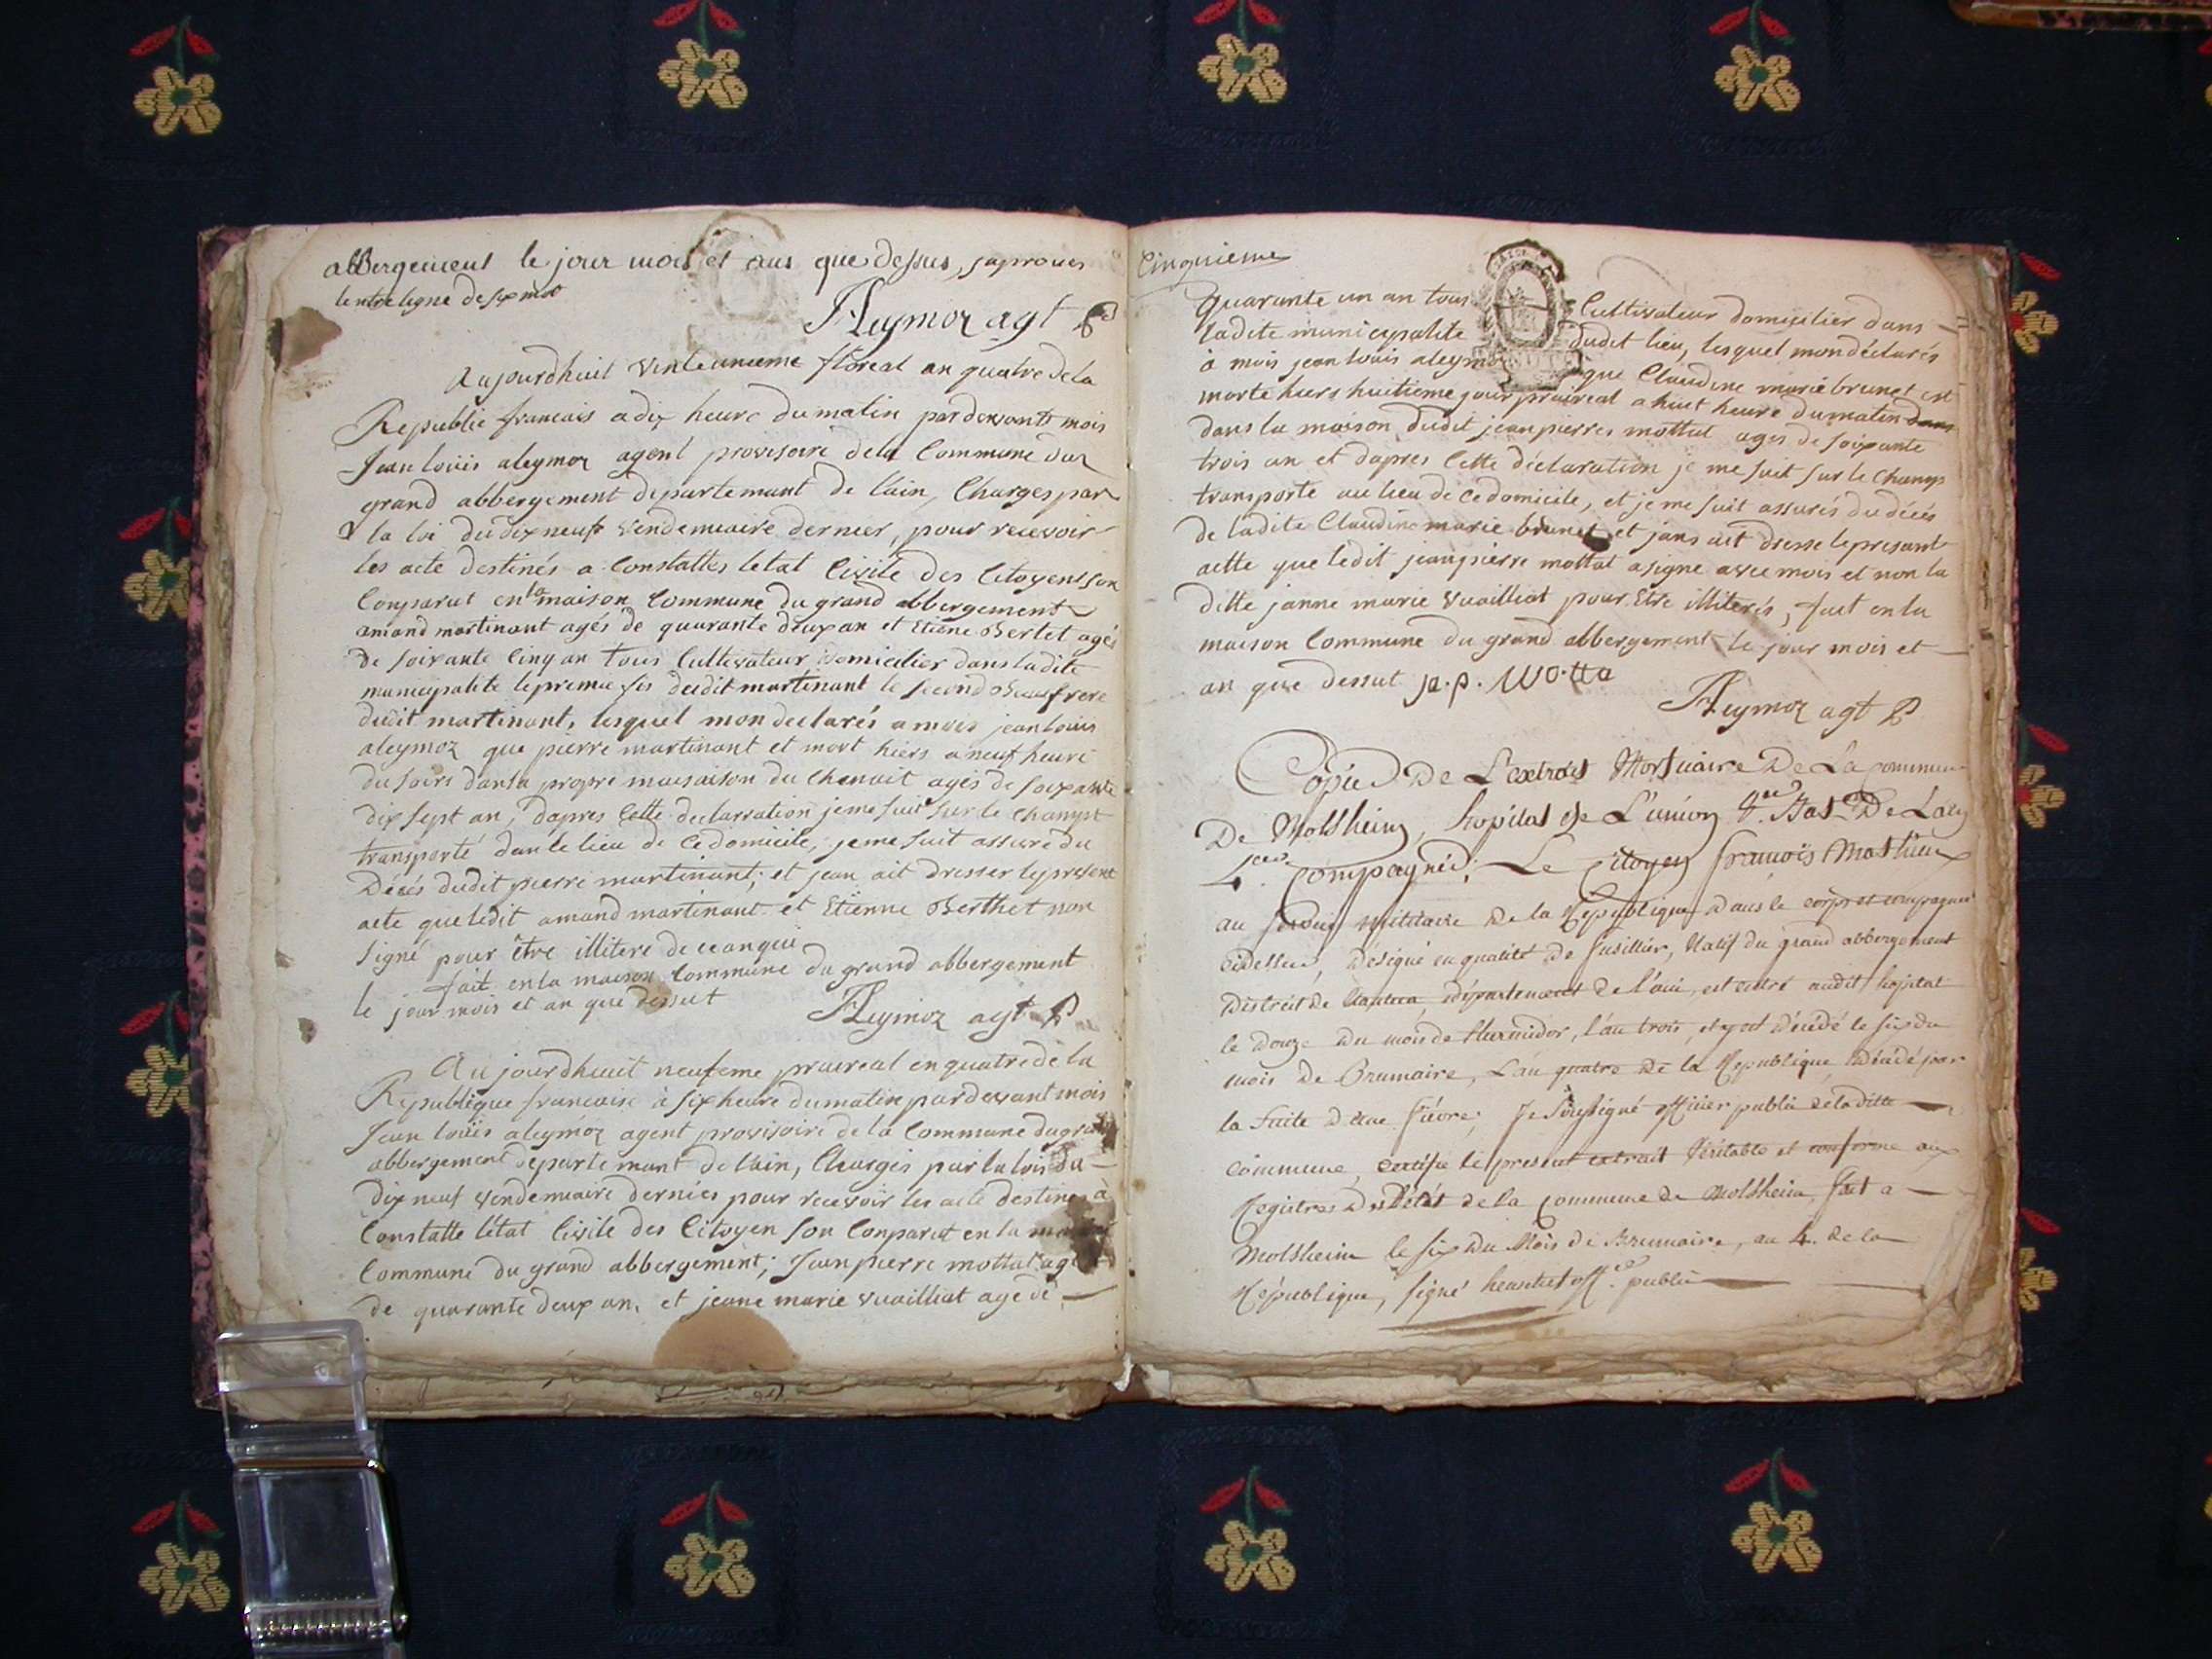 abbergement le jour mois et ans que dessus, japrouves
lentre ligne de six mot
Aleymoz agt
Aujourdhuit vinteunieme floreal an quatre de la
Republic francais a dix heure du matin par devants mois
Jean louis aleymoz agent provisoire de la Commune du
grand abbergement departemant de lain, Charges par
la loi du dix neuf vendemiaire dernier, pour recevoir
les acte destinés a Constatter letat Civile des Citoyent son
Conparut en la maison Commune du grand abbergement
amand martinant agés de quarante deux an et Etiene Bertet agés
de soixante Cinq an tous Cultivateur domicilier dans ladite
municipalite le premie fis dudit martinant le second Beaufrere
dudit martinant, lesquel mon declarés a mois jean louis
aleymoz que pierre martinant et mort hiers a neuf heure
du soirs dans la propre maisaison du Chanait agés de soixante
dix sept an, dapres Cette declarration je me suit sur le Champt
transporté dan le lieu de Ce domicile, je me suit assuré du
Décés dudit pierre martinant; et jean ait dresser le present
acte que ledit amand martinant et Etienne Berthet non
signé pour être illitere de ce anqui
fait en la maison Commune du grand abbergement
le jour mois et an que dessut
Aleymoz agt
Aujourdhuit neufeme praireal en quatre de la
Republique francaise à six heure du matin par devant mois
Jean louis aleymoz agent provisoire de la Commune du grand
abbergement departemant de lain, Chargés par la lois du
dix neuf vendemiaire derniés pour recevoir les acte destinés à
Constatte l'état Civile des Citoyen son Conparut en la maison
Commune du grand abbergement; Jean pierre mottat agé
de quarante deux an, et jeane marie vuailliat age de
Cinquieme
quarante un an tous Cultivateur domicilier dans
ladite municipalite dudit lieu, lesquel mon déclarés
à mois jean louis aleymoz que Claudine marie brunet est
morte hiers huitieme jour praireal a huit heure du matin dans
dans la maison dudit jean pierres mottat ages de soixante
trois an et dapres Cette déclaration je me suit sur le Champ
transporte au lieu de Ce domicile, et je me suit assurés du décés
de ladite Claudine marie brunet et jans ait dresse le presant
actte que ledit jean pierre mottat a signe avec mois et non la
ditte janne marie vuailliat pour Etre illiterés, fait en la
maison Commune du grand abbergement le jour mois et
an que dessut p. p. Motta
Aleymoz agt
Copie De L'extrait Mortuaire De La Commune
De Molsheim, hopital de L'union
4.me Compagnie; Le Citoyen francois Mathieu
au service militaire de la République dans le corps et compagnie
cidessus, désigné en qualité de fusillier, Natif du grand abbergement
District de Nantua, département de l'ain, est entré audit hopital
le douze du mois de thermidor, l'an trois, et y est décédé le six du
mois de Brumaire, l'an quatre de la Republique décédé par
la suite d'une fiévre; Je soussigné officier public de laditte
commune, certifie le present extrait Véritable et conforme aux
Registres des décès de la Commune de Molsheim, fait a
Molsheim le six du Mois de Brumaire, an 4. de la
République, signé off. public